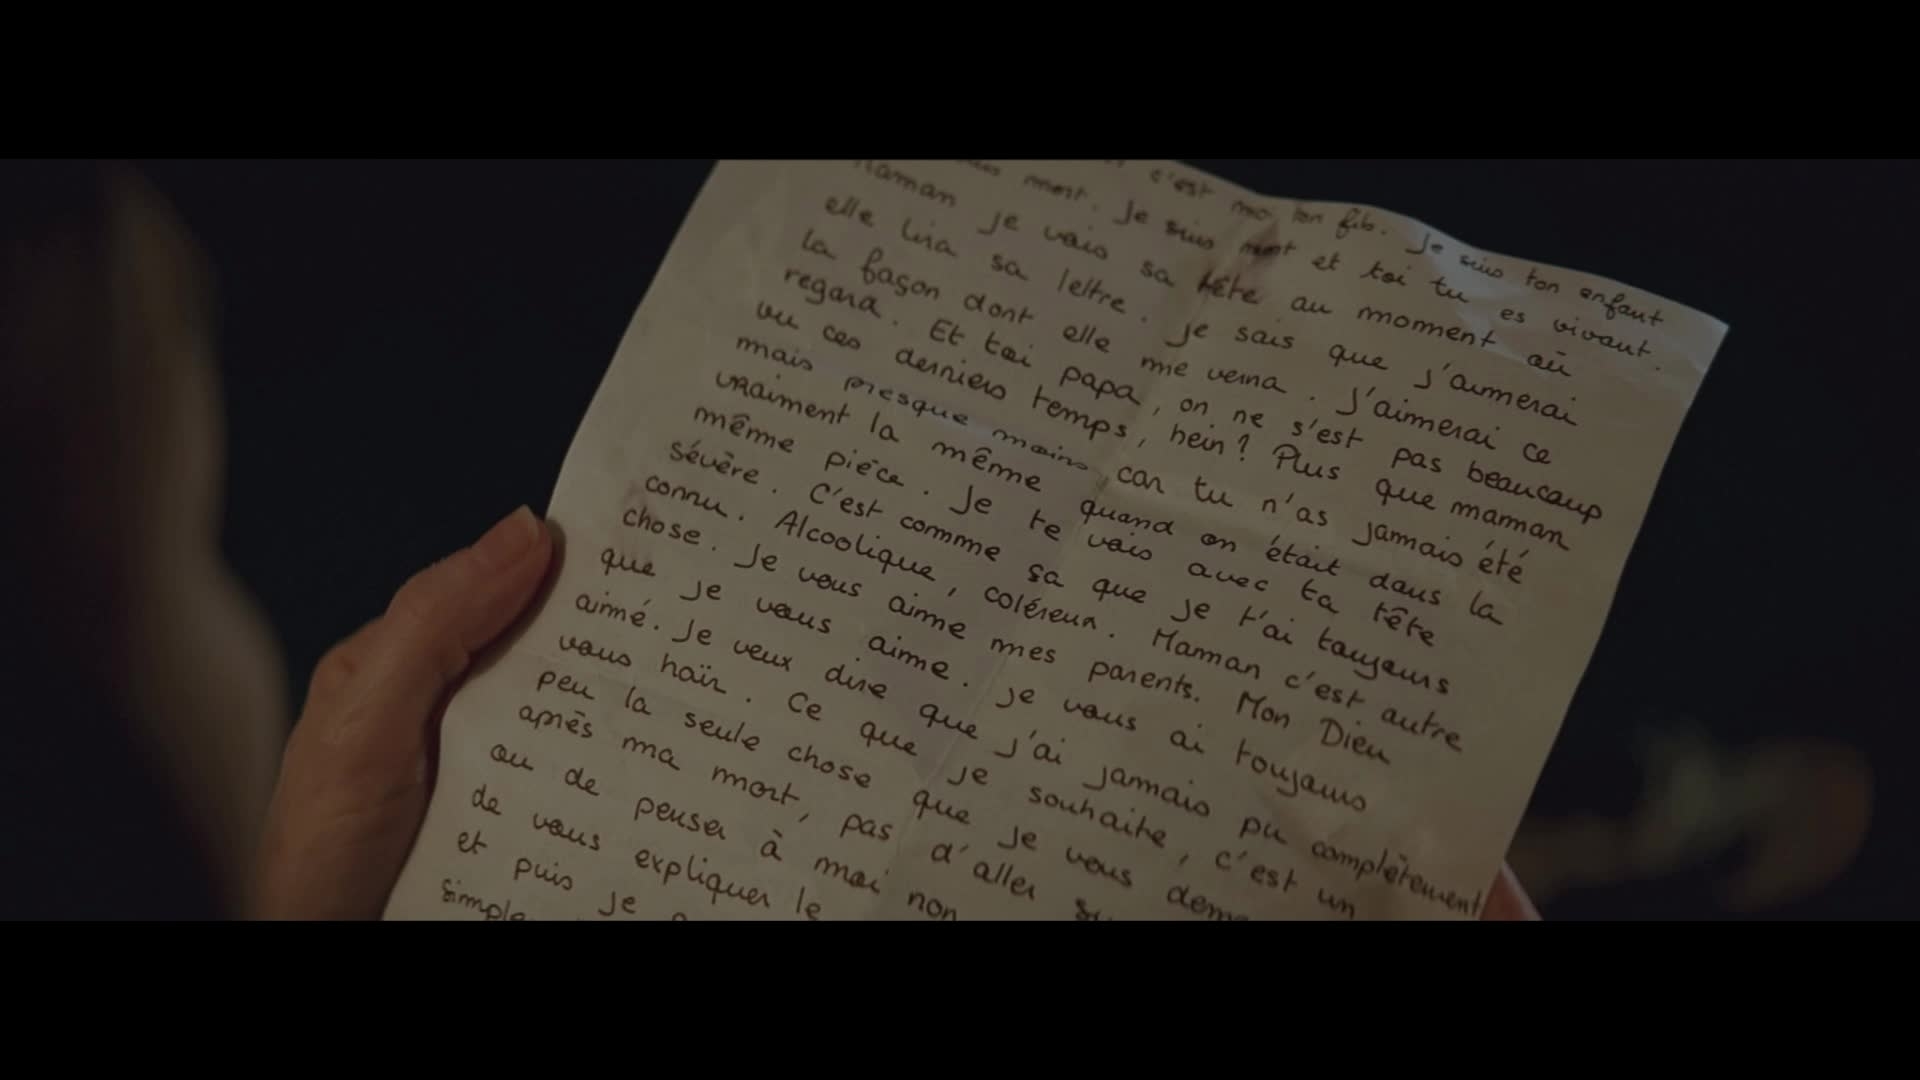 c'est moi ton fils. Je suis ton enfant
mort. Je suis mort et toi tu es vivant.
Maman je vois sa tête au moment où
elle lira sa lettre. Je sais que j'aimerai
la façon dont elle me verra. J'aimerai ce
regard. Et toi papa, on ne s'est pas beaucoup
vu ces derniers temps, hein? Plus que maman
mais presque moins car tu n'as jamais été
vraiment la même quand on était dans la
même pièce. Je te vois avec ta tête
sévère. C'est comme sa que je t'ai toujours
connu. Alcoolique, coléreux. Maman c'est autre
chose. Je vous aime mes parents. Mon Dieu
que je vous aime. Je vous ai toujours
aimé. Je veux dire que j'ai jamais pu complètement
vous haïr. Ce que je souhaite, c'est un
peu la seule chose que je vous
après ma mort, pas d'aller
ou de penser à moi non
de vous expliquer le
et puis je